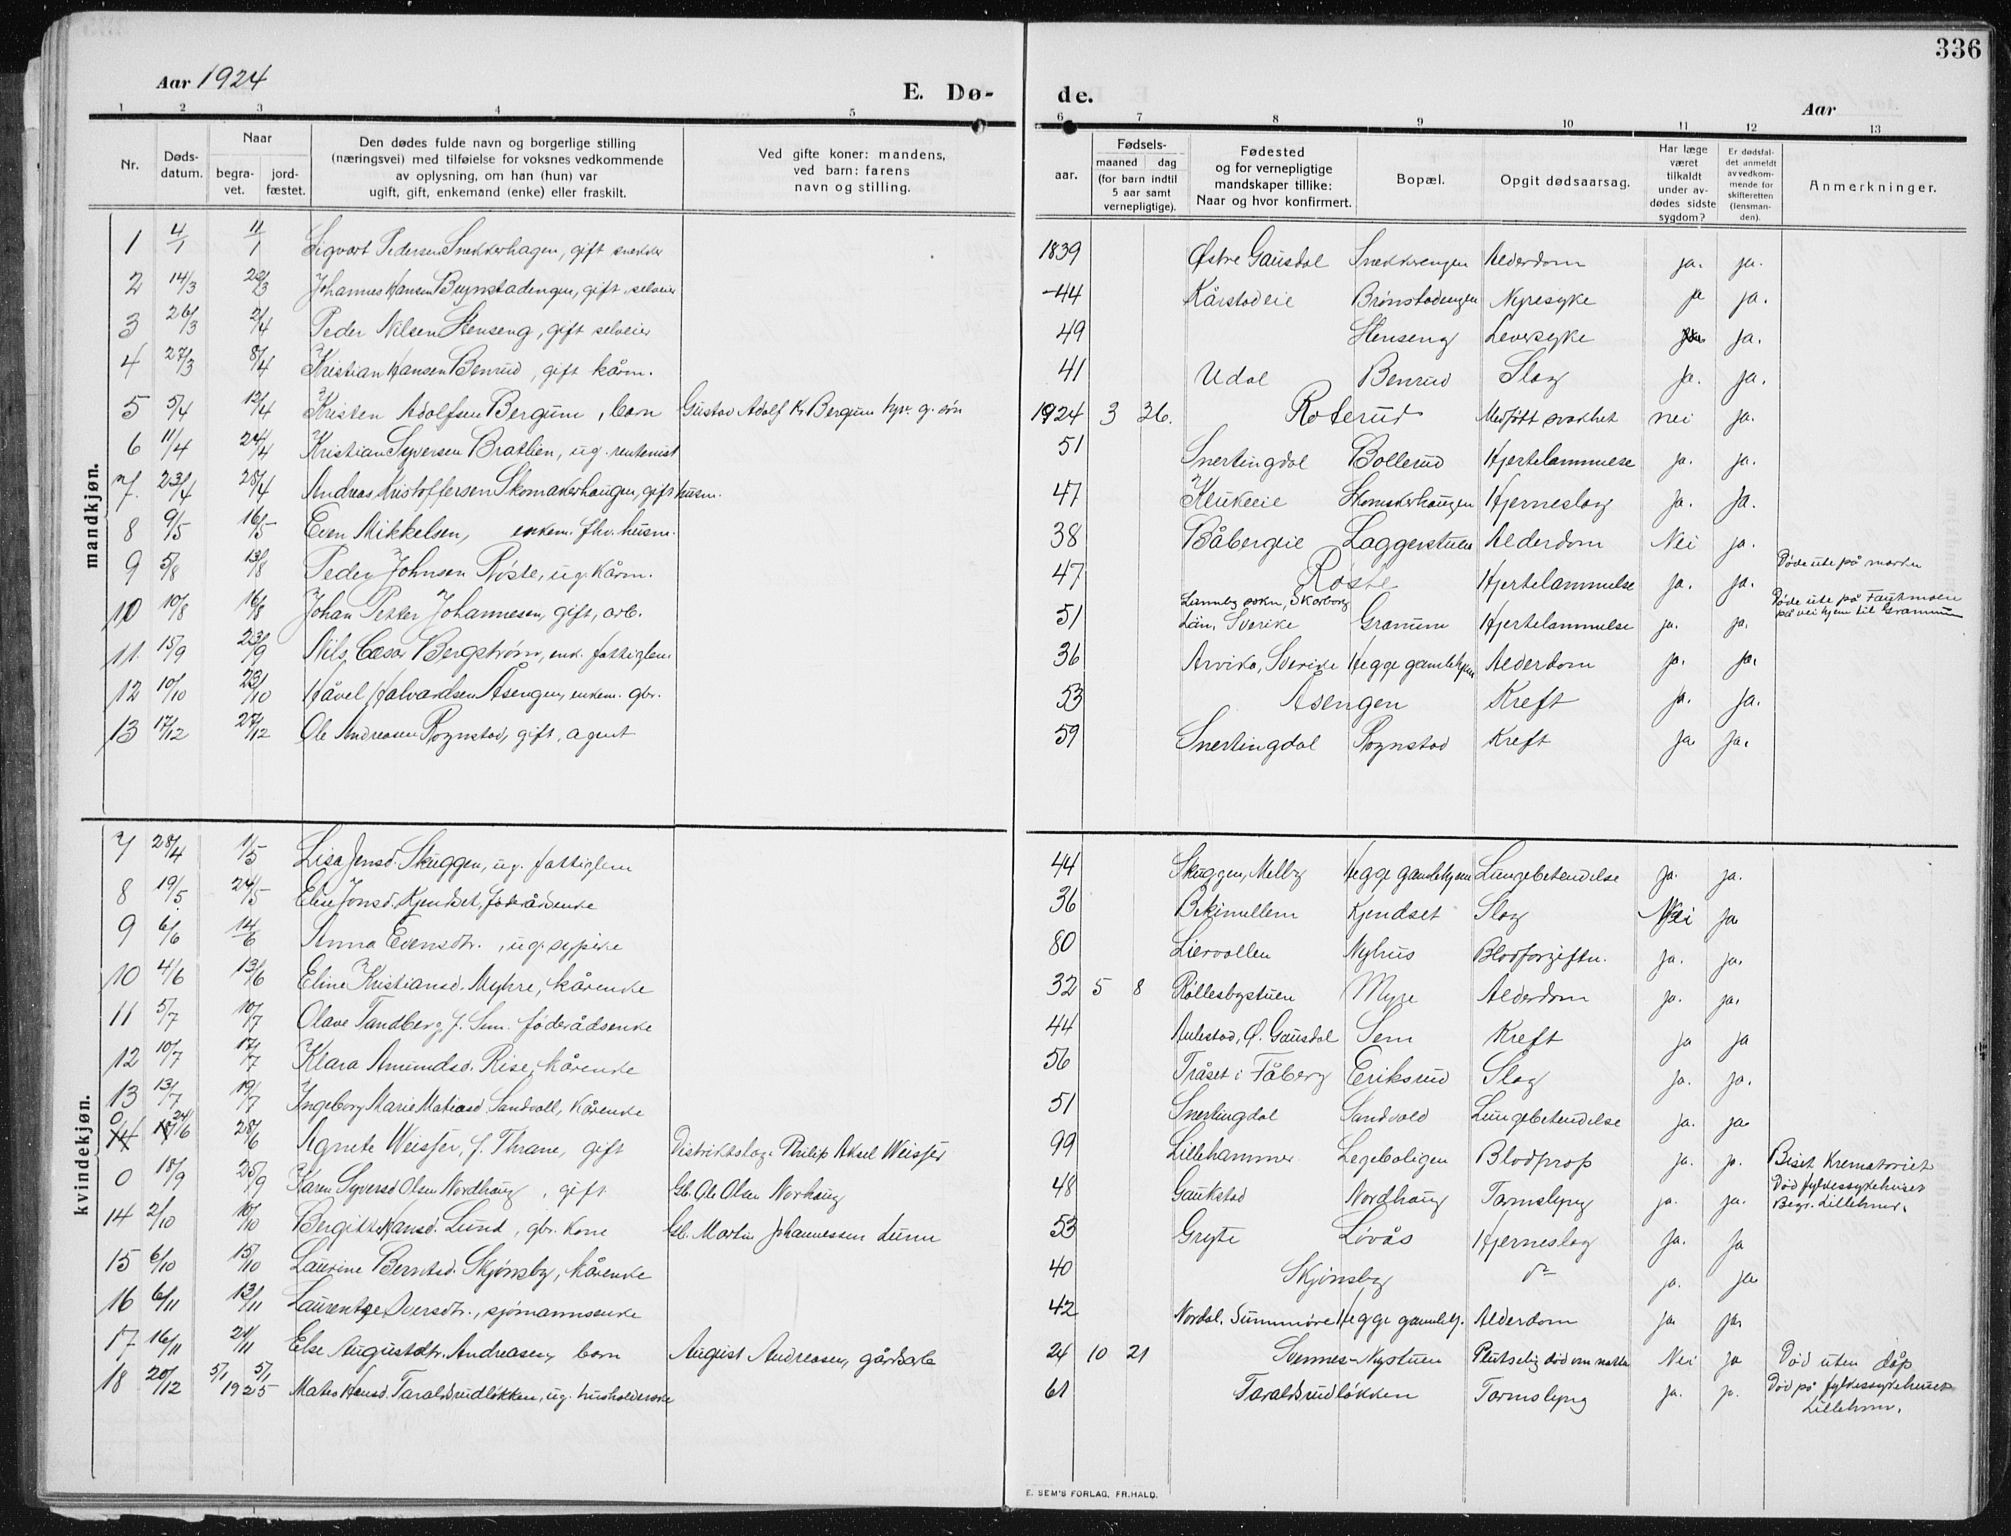 336
Aar 1924
E. Dø-
de.
Aar
1 2 3 4 5
6 7 8 9 10 11 12 13
Nr.
Døds-
datum.
Naar
begra-
vet.
jord-
fæstet.
Den dødes fulde navn og borgerlige stilling
(næringsvei) med tilføielse for voksnes vedkommende
av oplysning, om han (hun) var
ugift, gift, enkemand (enke) eller fraskilt.
Ved gifte koner: mandens,
ved barn: farens
navn og stilling.
aar.
Fødsels-
maaned dag
(for barn indtil
5 aar samt
vernepligtige).
Fødested
og for vernepligtige
mandskaper tillike:
Naar og hvor konfirmert.
Bopæl.
Opgit dødsaarsag.
Har læge
været
tilkaldt
under av-
dødes sidste
sygdom?
Er dødsfal-
det anmeldt
av vedkom-
mende for
skifteretten
(lensman-
den).
Anmerkninger.
mandkjøn.
1 4/1 11/1 Sigvart Pedersen Snekkerhagen, gift snekker 1839 Østre Gausdal Snekkerengen Alderdom ja. ja.
2 14/3 22/3 Johannes Hansen Brynstadengen, gift selveier -44 Kårstadeie Brønstadengen Nyresyke ja ja.
3 26/3 2/4 Peder Nilsen Stenseng, gift selveier 49 Stenseng Leversyke ja.
4 27/3 8/4 Kristian Hansen Benrud, gift kårm. 41 Udal Benrud Slag ja. ja.
5 5/4 12/4 Kristen Adolfsen Bergum, barn Gustav Adolf K. Bergum g. søn 1924 3 26. Roterud Medfött svakhet nei ja.
6 11/4 24/4 Kristian Syversen Bratlien, ug. rentenist 51 Snertingdal Bollerud Hjertelammelse ja. ja.
7. 23/4 28/4 Andreas Kristoffersen Skomakerhaugen, gift husm. 47 Klukeeie Skomakerhaugen Hjerneslag ja. ja.
8 9/5 16/5 Even Mikkelsen, enkem. fhv. husm. 38 Båbergeie Laggerstuen Alderdom Nei ja.
9 5/8 13/8 Peder Johnsen Røste, ug. kårm. 47 Røste Hjertelammelse ja. ja. Døde ute på marka
10 10/8 16/8 Johan Petter Johannesen, gift, arb. 51 Lunnby sokn, Skarborg Län, Sverike Granum Hjertelammelse ja. ja. Døde ute på Fautmoen på vei hjem til Granum
11. 15/9 23/9 Nils Cæsar Bergstrøm, enk. fattiglem 36 Arvika, Sverike Hegge gamlehjem Alderdom ja. ja.
12 10/10 23/10 Håvel Halvardsen Åsengen, enkem. gbr. 53 Åsengen Kreft ja. ja.
13 17/12 27/12 Ole Andreasen Rognstad, gift, agent 59 Snertingdal Rognstad Kreft ja ja.
kvindekjøn.
7 28/4 1/5 Lisa Jensd. Skuggen, ug. fattiglem 44 Skuggen, Melby Hegge gamlehjem Lungebetendelse ja. ja.
8 19/5. 24/5 Elise Jonsd. Kjendset, föderådsenke 36 Bekimellem Kjendset Slag Nei ja
9 6/6 14/6 Anna Evensdtr., ug. sypike 80 Liervollen Nyhus Blodforgiftn. ja. ja.
10 4/6 13/6 Eline Kristiansd. Myhre, kårenke 32 5 8 Rollesbystuen Myre Alderdom ja. ja.
11 5/7 10/7 Olave Tandberg f. Sem. föderådsenke 44 Aulestad, Ø. Gausdal Sem Kreft ja ja
12 10/7 17/7 Klara Amundsd. Rise, kårenke 56 Tråset i Fåberg Eriksrud Slag ja. ja.
13 13/7 19/7 Ingeborg Marie Matiasd Sandvoll, Kårenke 51 Snertingdal Sandvold Lungebetendelse ja. ja
0 24/6 28/6 Agnete Weisser, f. Thrane, gift Distriktslæge Philip Aksel Weisser 99 Lillehammer Legeboligen Blodprop ja. ja. Biset Krematoriet
0 18/9 25/9 Karen Syversd Olsen Nordhaug, gift Gb. Ole Olsen Norhaug 48 Gaukstad Nordhaug Tarmslyng ja. ja. Død fylkessykehuset Begr. Lillehmr.
14 2/10 10/10 Bergitte Hansd. Lund, gbr. kone Gb. Martin Johannessen Lunn 53 Gryte Løvås Hjerneslag ja. ja
15 6/10 15/10 Laurine Berntsd. Skjønsby, kårenke 40 Skjønsby do ja. ja
16 6/11 13/11 Laurentze Iversdtr., sjømannsenke 42 Nordal. Summøre Hegge gamleh. Alderdom ja ja.
17 16/11 21/11 Else Augustdtr. Andreasen, barn August Andreasen, gårdsarb 24 10 21 Svennes-Nystuen Plutselig död om natta Nei ja Død uten dåp
18 20/12 5/1 5/1 1925 Mates Hansd. Taraldsrudløkken, ug. husholderske 61 Taraldsrudløkken Tarmslyng ja. ja. Død på fylkessykehuset Lillehmr.
E. SEM'S FORLAG, FR.HALD.